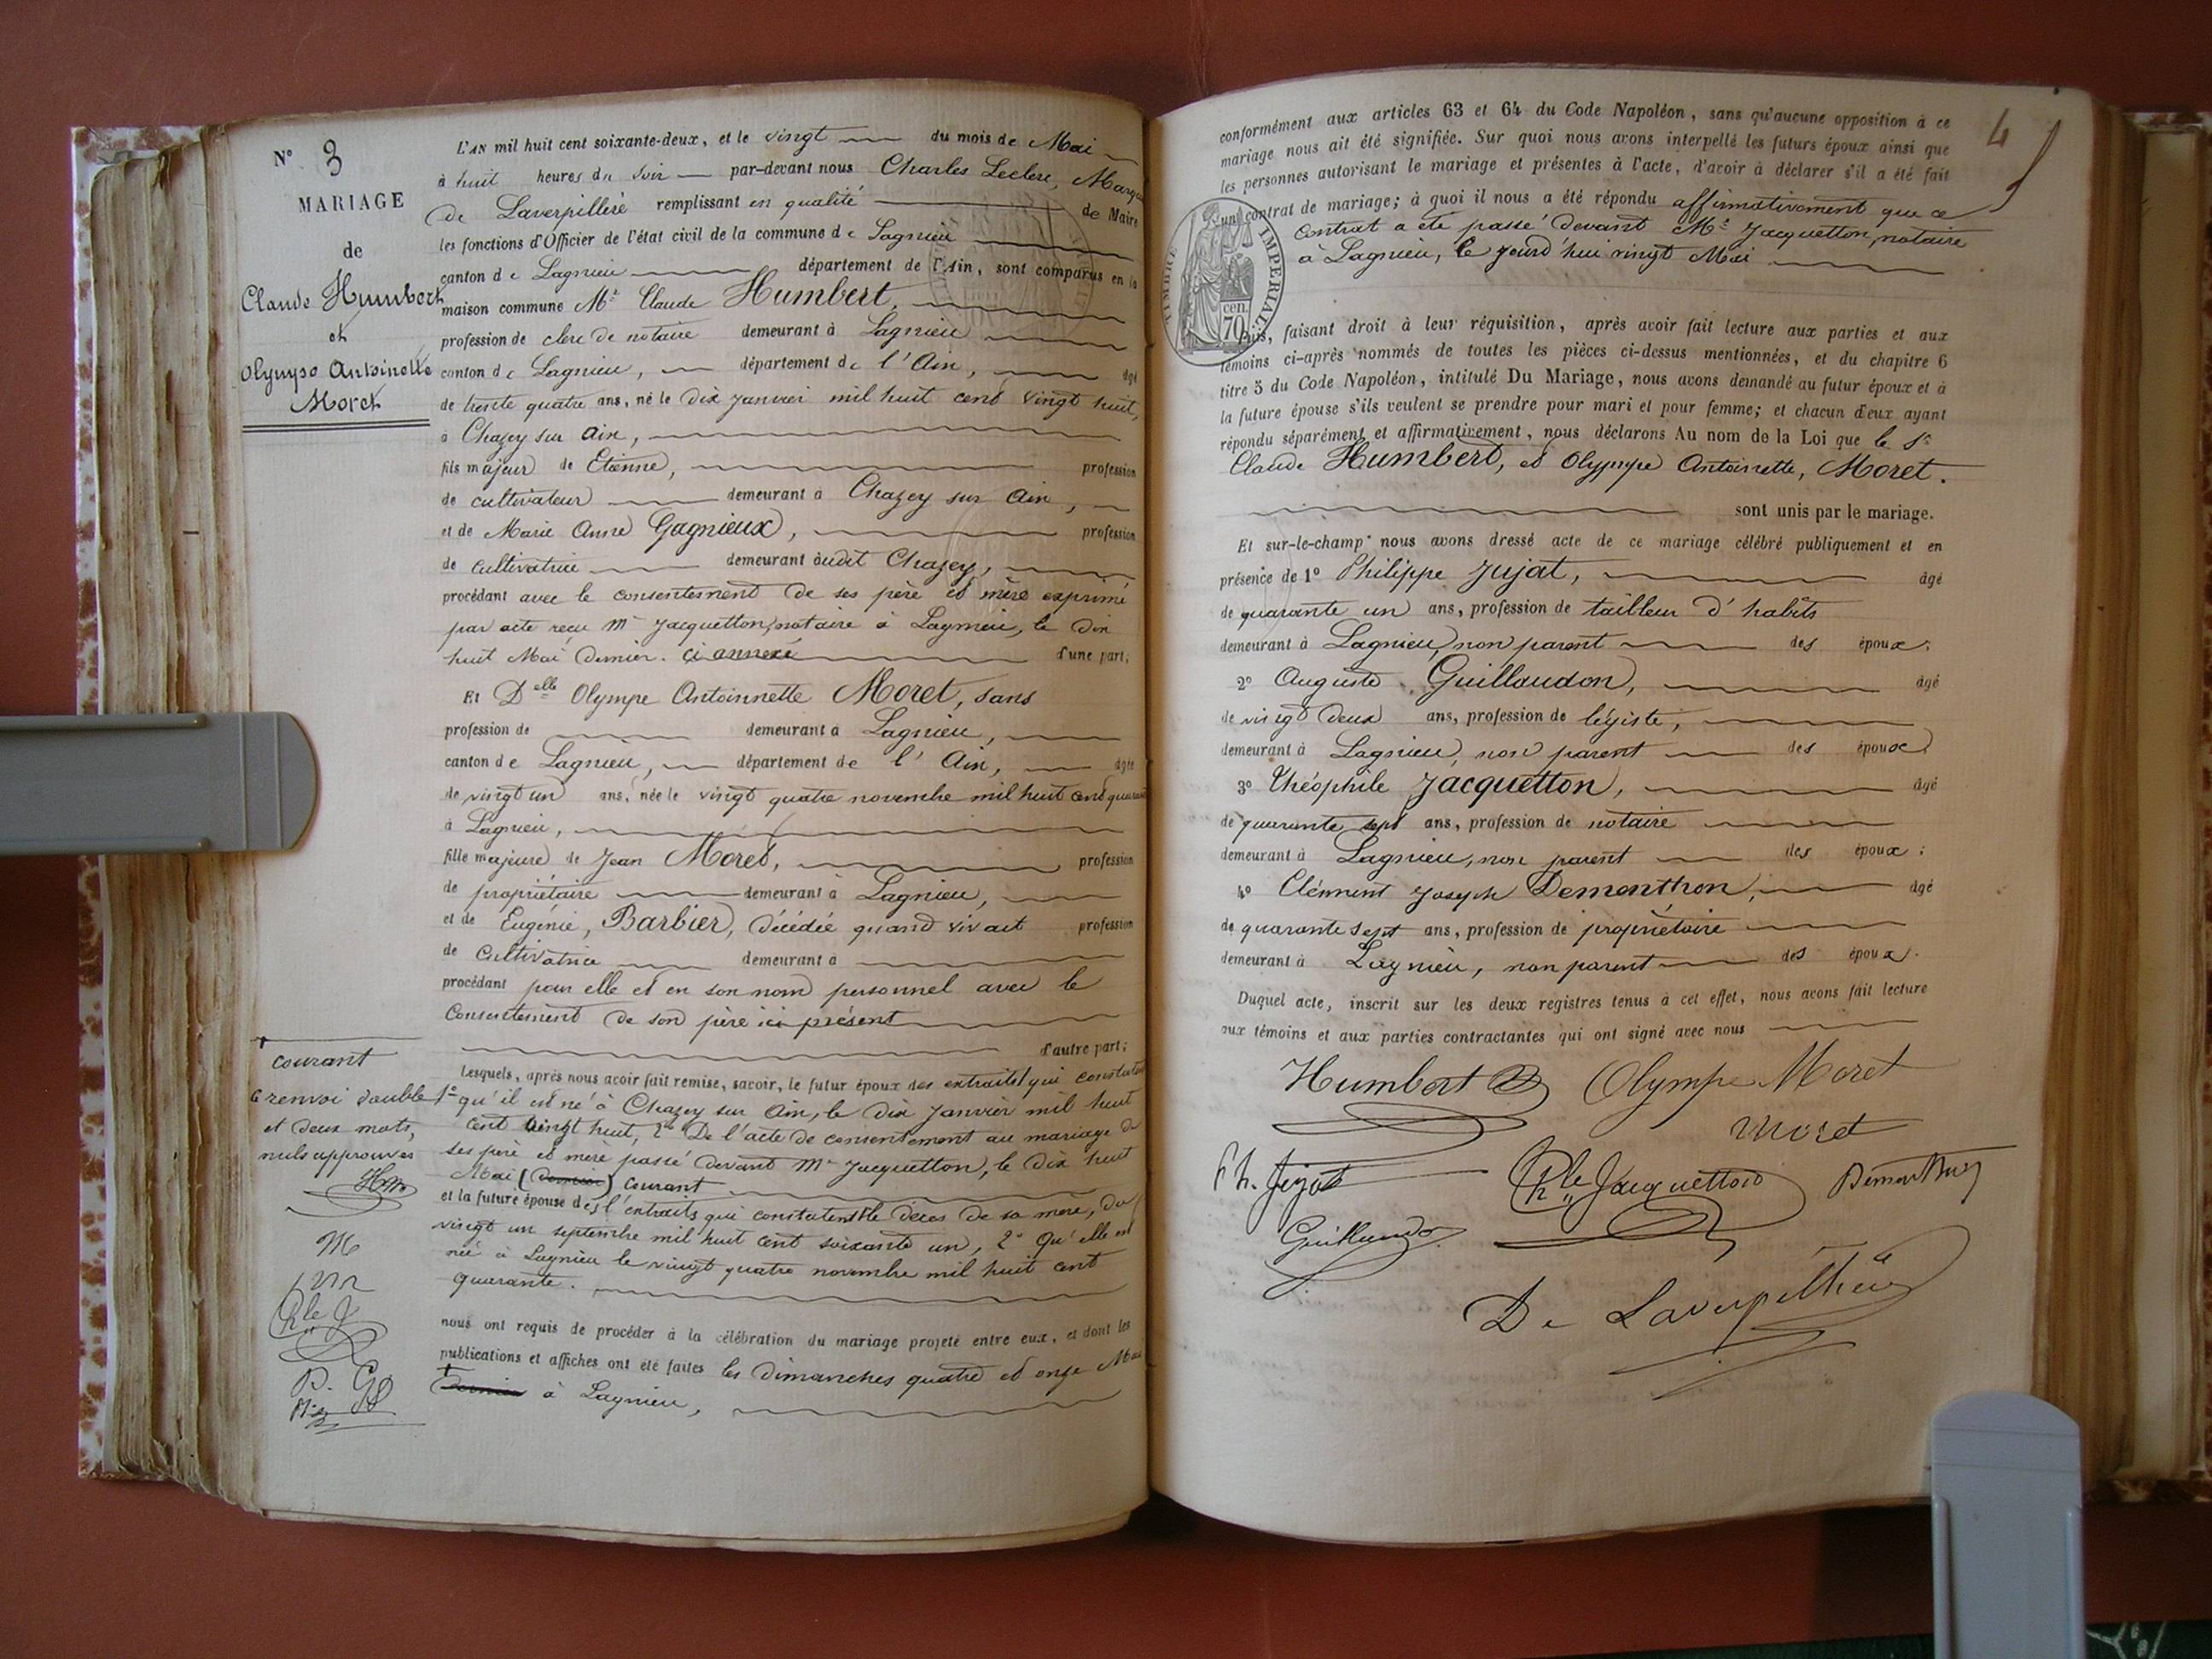 N° 3
MARIAGE
de
Claude Humbert
et
Olympe Antoinette
Moret
L'AN mil huit cent soixante-deux, et le vingt du mois de Mai
à huit heures du soir par-devant nous Charles Leclerc, Marquis
de Laverpillère remplissant en qualité de Maire
les fonctions d'Officier de l'état civil de la commune de Lagnieu
canton de Lagnieu département de l'Ain, sont comparus en la
maison commune Mr Claude Humbert,
profession de clerc de notaire demeurant à Lagnieu
canton de Lagnieu, département de l'Ain, âgé
de trente quatre ans, né le dix janvier mil huit cent vingt huit,
à Chazey sur Ain,
fils majeur de Etienne, profession
de cultivateur demeurant à Chazey sur Ain,
et de Marie Anne Gagnieux, profession
de cultivatrice demeurant àudit Chazey,
procédant avec le consentement de ses père et mère exprimé
par acte reçu Me Jacquetton, notaire à Lagnieu, le dix
huit Mai dernier. ci annexé d'une part;
Et Delle Olympe Antoinnette Moret, sans
profession de demeurant à Lagnieu,
canton de Lagnieu, département de l'Ain, âgée
de vingt un ans, née le vingt quatre novembre mil huit cent quarante
à Lagnieu,
fille majeure de Jean Moret, profession
de propriétaire demeurant à Lagnieu,
et de Eugénie, Barbier, décédée quand vivait profession
de cultivatrice demeurant à
procédant pour elle et en son nom personnel avec le
consentement de son père ici présent
d'autre part;
Lesquels, après nous avoir fait remise, savoir, le futur époux des extraits qui constatent
1° qu'il est né à Chazey sur Ain, le dix Janvier mil huit
cent vingt huit, 2° De l'acte de consentement au mariage de
ses père et mère passé devant Me Jacquetton, le dix huit
Mai (dernier) courant
et la future épouse des extraits qui constatent le décès de sa mère, du
vingt un septembre mil huit cent soixante un, 2° qu'elle est
née à Lagnieu le vingt quatre novembre mil huit cent
quarante.
nous ont requis de procéder à la célébration du mariage projeté entre eux, et dont les
publications et affiches ont été faites les dimanches quatre et onze Mai
dernier à Lagnieu,
courant
renvoi double
et deux mots,
nuls approuvés
Hm
M
Chle J
D. G
conformément aux articles 63 et 64 du Code Napoléon, sans qu'aucune opposition à ce
mariage nous ait été signifiée. Sur quoi nous avons interpellé les futurs époux ainsi que
les personnes autorisant le mariage et présentes à l'acte, d'avoir à déclarer s'il a été fait
un contrat de mariage; à quoi il nous a été répondu affirmativement que ce
contrat a été passé devant Me Jacquetton, notaire
à Lagnieu, le jourd'hui vingt Mai
4
TIMBRE IMPERIAL
70 cen.
Puis, faisant droit à leur réquisition, après avoir fait lecture aux parties et aux
témoins ci-après nommés de toutes les pièces ci-dessus mentionnées, et du chapitre 6
titre 5 du Code Napoléon, intitulé Du Mariage, nous avons demandé au futur époux et à
la future épouse s'ils veulent se prendre pour mari et pour femme; et chacun d'eux ayant
répondu séparément et affirmativement, nous déclarons Au nom de la Loi que le Sr
Claude Humbert, et Olympe Antoinette, Moret.
sont unis par le mariage.
Et sur-le-champ nous avons dressé acte de ce mariage célébré publiquement et en
présence de 1° Philippe Jujat, âgé
de quarante un ans, profession de tailleur d'habits
demeurant à Lagnieu, non parent des époux;
2° Auguste Guillaudon, âgé
de vingt deux ans, profession de légiste,
demeurant à Lagnieu, non parent des époux;
3° Théophile Jacquetton, âgé
de quarante sept ans, profession de notaire
demeurant à Lagnieu, non parent des époux;
4° Clément Joseph Demonthon, âgé
de quarante sept ans, profession de propriétaire
demeurant à Lagnieu, non parent des époux.
Duquel acte, inscrit sur les deux registres tenus à cet effet, nous avons fait lecture
aux témoins et aux parties contractantes qui ont signé avec nous
Humbert Olympe Moret
Moret
Ph. Jujat Jacquetton
De Laverpillière